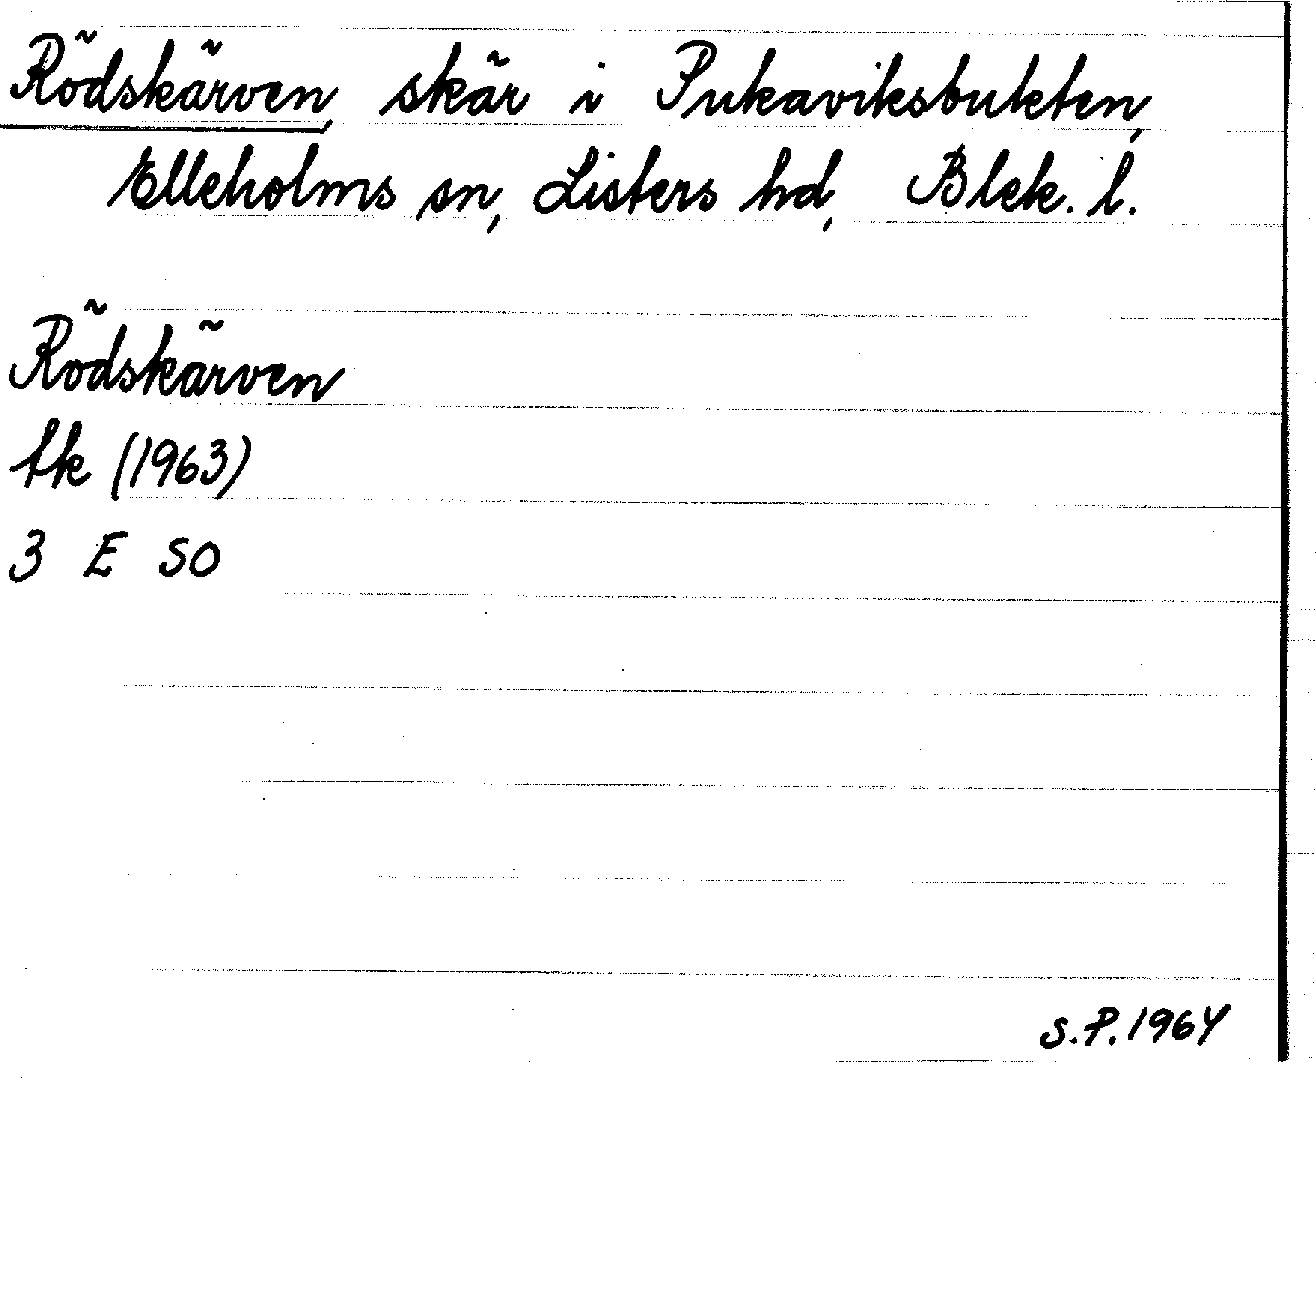 Rödskärven, skär i Pukaviksbukten,
Elleholms sn, Listers hd, Blek. l.
Rödskärven
tk (1963)
3 E SO
S.P. 1964